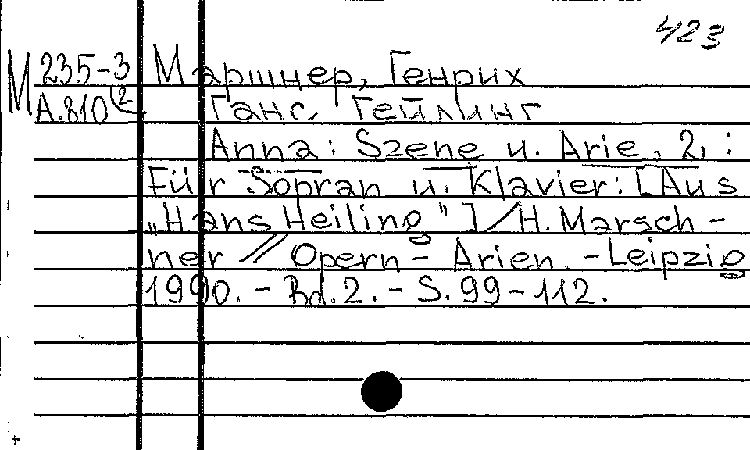 423
M 235-3 Маршнер, Генрих
A.810(2 Ганс Гейлинг
Anna: Szene u. Arie, 2,:
Für Sopran u. Klavier: [Aus
„Hans Heiling"]/H. Marsch-
ner // Opern-Arien. -Leipzig
1990. - Bd. 2. - S. 99-112.